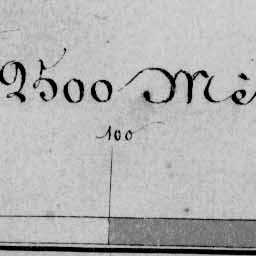 2500 Mè
100